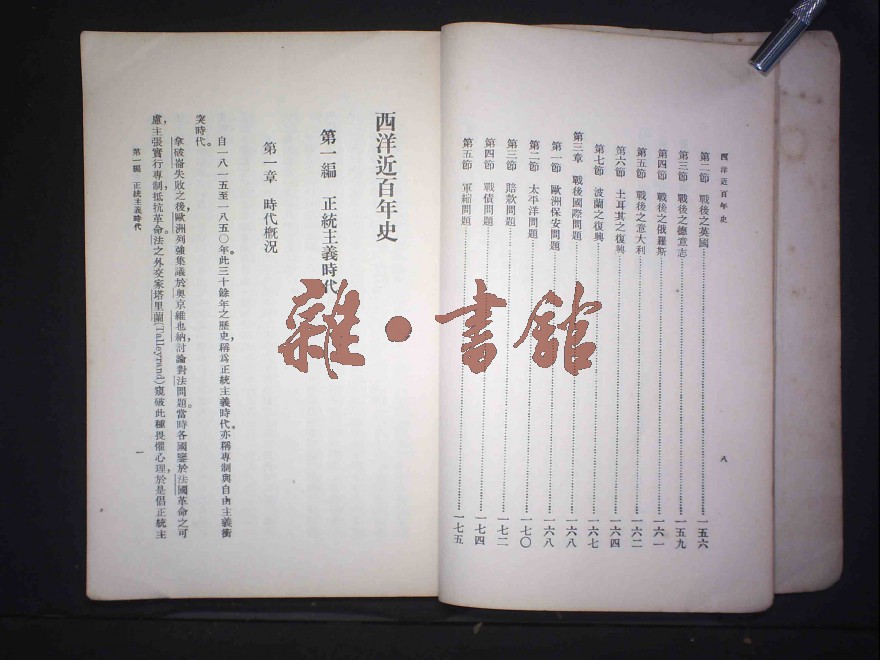 西洋近百年史
第二節　戰後之英國………一五六
第三節　戰後之德意志………一五九
第四節　戰後之俄羅斯………一六一
第五節　戰後之意大利………一六二
第六節　土耳其之復興………一六四
第七節　波蘭之復興………一六七
第三章　戰後國際問題………一六八
第一節　歐洲保安問題………一六八
第二節　太平洋問題………一七〇
第三節　賠款問題………一七二
第四節　戰債問題………一七四
第五節　軍縮問題………一七五
八
西洋近百年史
第一編　正統主義時代
第一章　時代概況
自一八一五至一八五〇年。此三十餘年之歷史，稱爲正統主義時代。亦稱專制與自由主義衝
突時代。
拿破崙失敗之後，歐洲列強集議於奧京維也納，討論對法問題。當時各國鑒於法國革命之可
慮，主張實行專制，抵抗革命。法之外交家塔里蘭(Talleyrand)窺破此種畏懼心理，於是倡正統主
第一編　正統主義時代
一
雜·書館